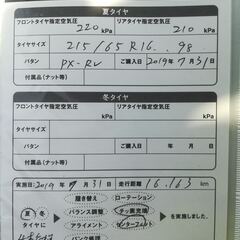 夏タイヤ
フロントタイヤ指定空気圧 リアタイヤ指定空気圧
220 kPa 210 kPa
タイヤサイズ 215/65R16 98
パタン PX-RV ご購入日 2019年7月31日
付属品(ナット等)
冬タイヤ
フロントタイヤ指定空気圧 リアタイヤ指定空気圧
kPa kPa
タイヤサイズ
パタン ご購入日 年 月 日
付属品(ナット等)
実施日:2019年7月31日 走行距離 16,163 km
夏・冬
タイヤに
履き替え ローテーション
バランス調整 チッ素充填
アライメント センターフィット
パンク修理
を実施しました。